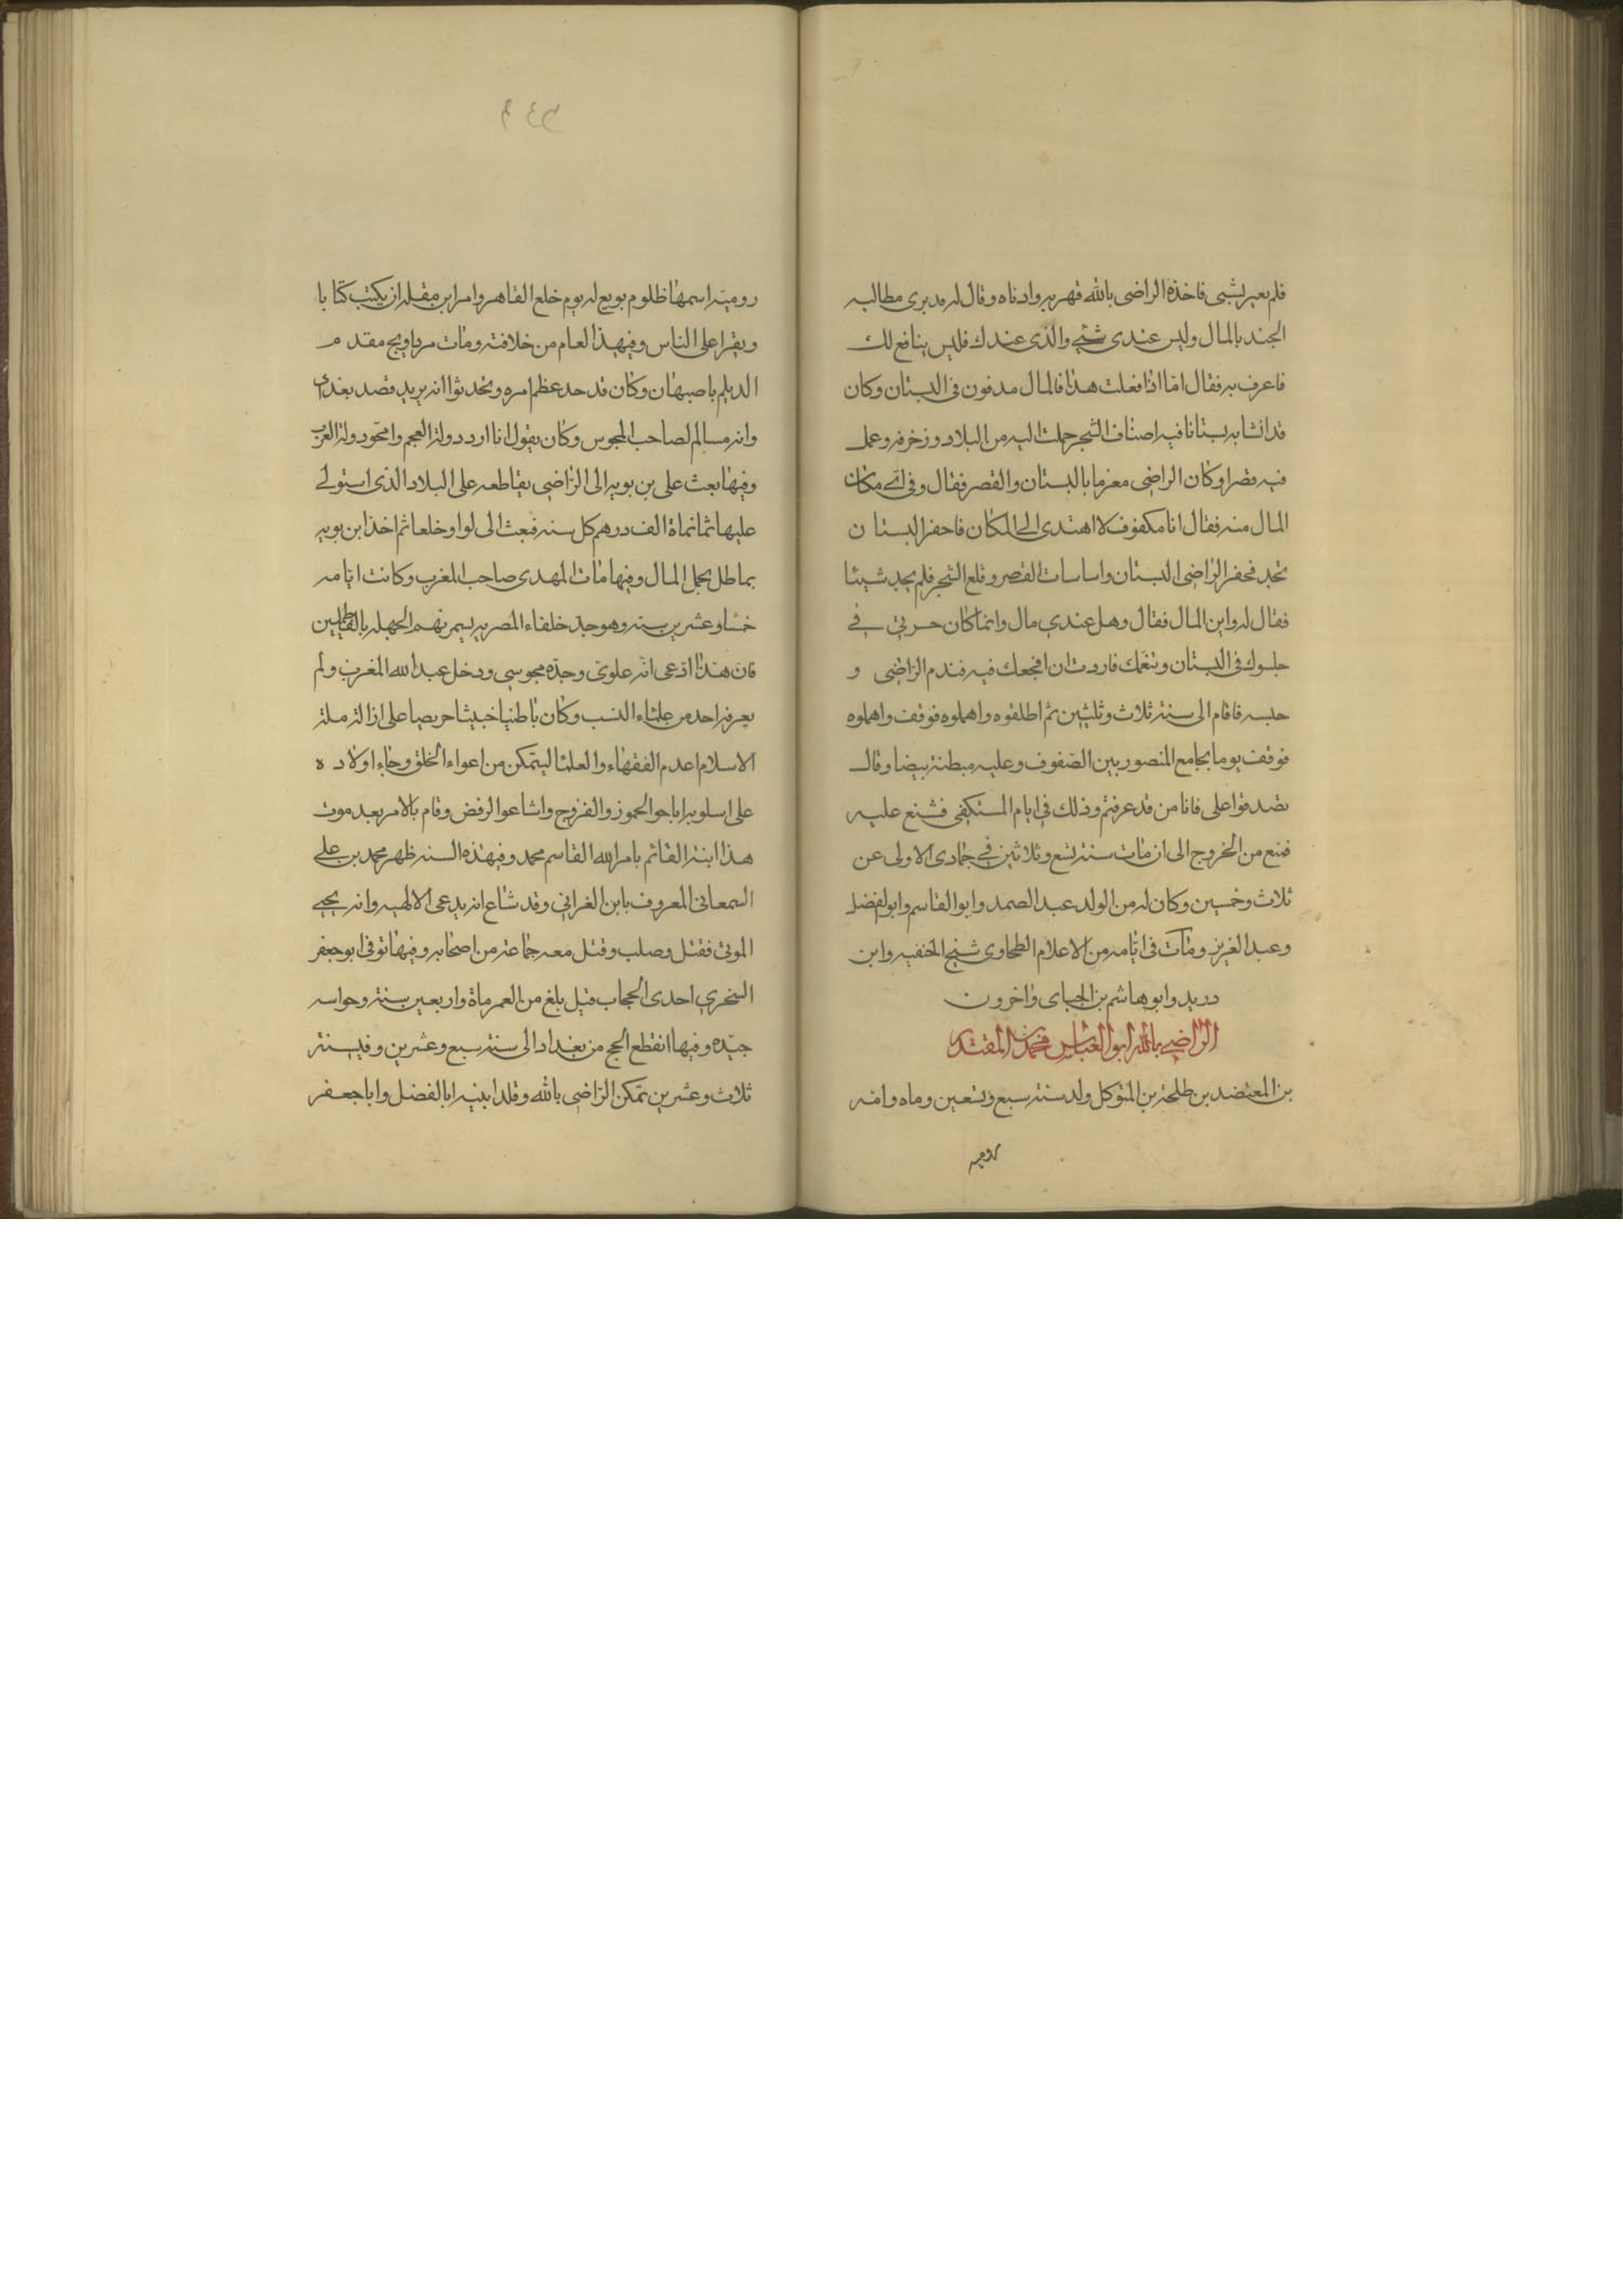 فلم يعير بشي فاخذه الراضى بالله فهربه وادناه وقال له مدبرى مطالبه
الجند بالمال وليس عندى شيء والذى عندك فليس ينافع لك
فاعرف به فقال اما اذا فعلت هذا فالمال مدفون فى البستان وكان
قد انشا به بستانا فيه اصناف الشجر حملت اليه من البلاد وزخرفه وعمل
فيه قصرا وكان الراضى مغرما بالبستان والقصر فقال وفى اى مكان
المال منه فقال انا مكفوف لا اهتدى الى المكان فاحفر البستان
تجد فحفر الراضى البستان واساسات القصر وقلع الشجر فلم يجد شيئا
فقال له واين المال فقال وهل عندي مال وانما كان حسرتى في
جلوسك فى البستان وتنعمك فاردت ان افجعك فيه فندم الراضى و
حبسه فاقام الى سنة ثلاث وثلثين ثم اطلقوه واهملوه فوقف واهملوه
فوقف يوما بجامع المنصور بين الصفوف وعليه مبطنة بيضا وقال
تصدقوا على فانا من قد عرفتم وذلك فى ايام المستكفى فشنع عليه
فمنع من الخروج الى ان مات سنة تسع وثلاثين في جمادى الاولى عن
ثلاث وخمسين وكان له من الولد عبد الصمد وابو القاسم وابو الفضل
وعبد العزيز ومات فى ايامه من الاعلام الطحاوى شيخ الحنفيه وابن
دريد وابو هاشم بن الجباى واخرون
الراضي بالله ابو العباس محمد بن المقتدر
بن المعتضد بن طلحة بن المتوكل ولد سنة سبع وتسعين وماه وامه
روميه
رومية اسمها ظلوم بويع له يوم خلع القاهر وامر ابن مقله ان يكتب كتابا
ويقرا على الناس وفى هذا العام من خلافته ومات مرداويج مقدم
الديلم باصبهان وكان قد حد عظم امره وتحدثوا انه يريد قصد بغداد
وانه مسالم لصاحب المجوس وكان يقول انا ارد دولة العجم وامحو دولة العرب
وفيها بعث على بن بويه الى الراضى يقاطعه على البلاد الذى استولى
عليها ثمانماة الف درهم كل سنه فبعث الى لوا وخلعا ثم اخذ ابن بويه
يماطل بحمل المال وفيها مات المهدى صاحب المغرب وكانت ايامه
خمسا وعشرين سنه وهو جد خلفاء المصريه يسمونهم الجهله بالفاطميين
فان هذا ادعى انه علوى وجده مجوسي ودخل عبد الله المغرب ولم
يعرفه احد من علماء النسب وكان باطنيا خبيثا حريصا على ازالة ملة
الاسلام اعدم الفقهاء والعلما ليتمكن من اعواء الخلق وجاء اولاده
على اسلوبه اباحوا الخمور والفروج واشاعوا الرفض وقام بالامر بعد موت
هذا ابنه القائم بامر الله القاسم محمد وفى هذه السنه ظهر محمد بن على
السمعانى المعروف بابن الغرانى وقد شاع انه يدعى الالهيه وانه يحيي
الموتى فقتل وصلب وقتل معه جماعة من اصحابه وفيها توفى ابو جعفر
السخرى احدى الحجاب قيل بلغ من العمر ماة واربعين سنة وحواسه
جيده وفيها انقطع الحج من بغداد الى سنة سبع وعشرين وفى سنة
ثلاث وعشرين تمكن الراضى بالله وقلد ابنيه ابا الفضل وابا جعفر